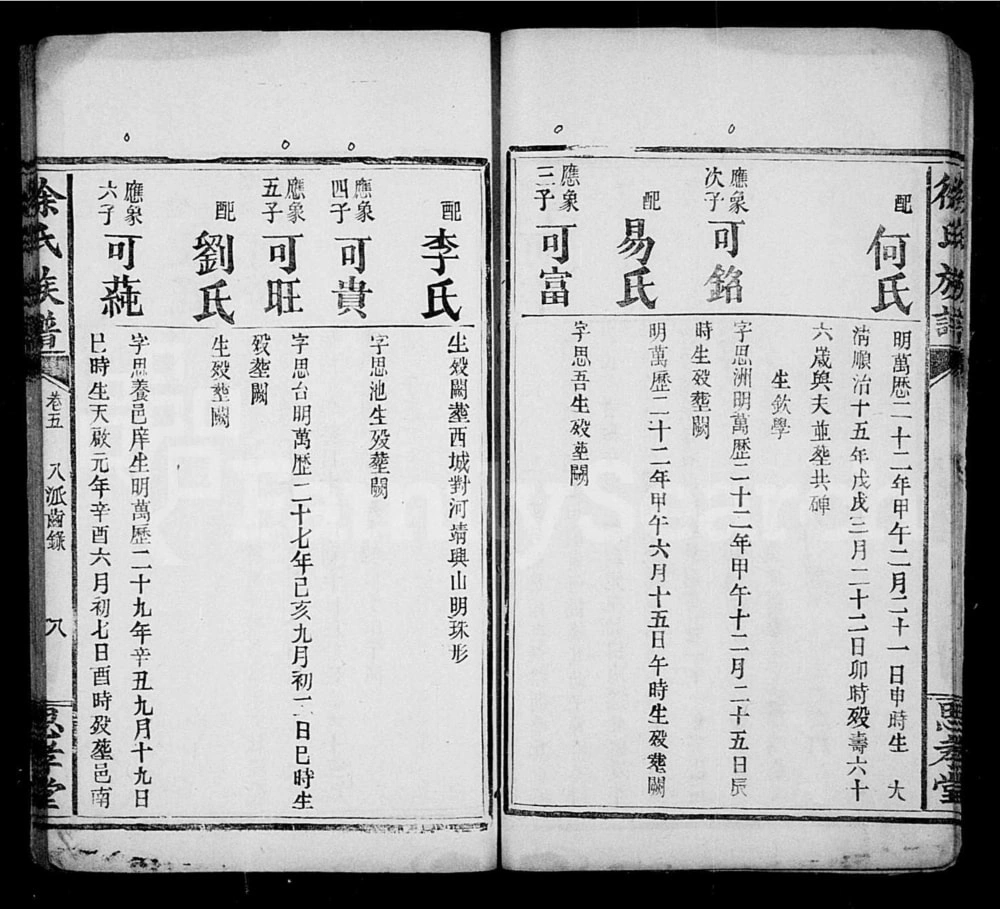 徐氏族譜
思孝堂
配
何氏
明萬歷二十二年甲午二月二十一日申時生 大
清順治十五年戊戌三月二十二日卯時殁壽六十
六歲與夫並塟共碑
生欽學
應象
次子
可銘
字思洲明萬歷二十二年甲午十二月二十五日辰
時生殁塟闕
配
易氏
明萬歷二十二年甲午六月十五日午時生殁塟闕
應象
三子
可富
字思吾生殁塟闕
配
李氏
生殁闕塟西城對河靖興山明珠形
應象
四子
可貴
字思池生殁塟闕
應象
五子
可旺
字思台明萬歷二十七年己亥九月初二日巳時生
殁塟闕
配
劉氏
生殁塟闕
應象
六子
可蒓
字思養邑庠生明萬歷二十九年辛丑九月十九日
巳時生天啟元年辛酉六月初七日酉時殁塟邑南
徐氏族譜
卷五
八派齒錄
八
思孝堂